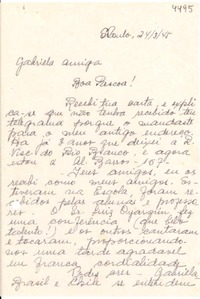 4495
S Paulo, 24/3/45
Gabriela amiga
Boa Pascoa!
Recebi tua carta, e expli-
ca-se que não tenha recebido teu
telegrama porque o mandaste
para o meu antigo endereço.
Ha já 3 anos que deixei a R.
Visc. do Rio Branco, e agora
estou a Al. Barros - 167 -
Teus amigos, eu os
recebi como meus amigos. Es-
tiveram na Escola, foram re-
cebidos pelas alunas e professo-
res. O Sr. Luiz Oyarzún deu
uma conferencia (que bri-
talento!) e os outros cantaram
e tocaram, proporcionando-
nos uma tarde agradavel
em franca cordialidade.
Gabriela
Brasil e Chile se entendem